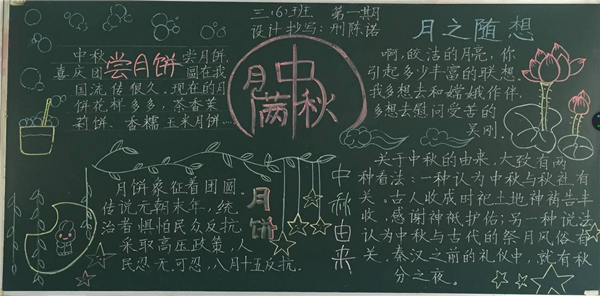 三.(6)班 第一期
设计抄写:邢陈诺
中秋 尝月饼
尝月饼,
喜庆团圆在我
国流传很久。现在的月
饼花样多多,茶香茉
莉饼、香糯玉米月饼…
月满中秋
月之随想
啊,皎洁的月亮,你
引起多少丰富的联想。
我多想去和嫦娥作伴,
多想去慰问受苦的
吴刚。
月饼象征着团圆。
传说元朝末年,统
治者惧怕民众反抗
采取高压政策,人
民忍无可忍,八月十五反抗。
月饼
中秋由来
关于中秋的由来,大致有两
种看法:一种认为中秋与秋社有
关。古人收成时祀土地神祷告丰
收,感谢神祇护佑;另一种说法
认为中秋与古代的祭月风俗有
关,秦汉之前的礼仪中,就有秋
分之夜。